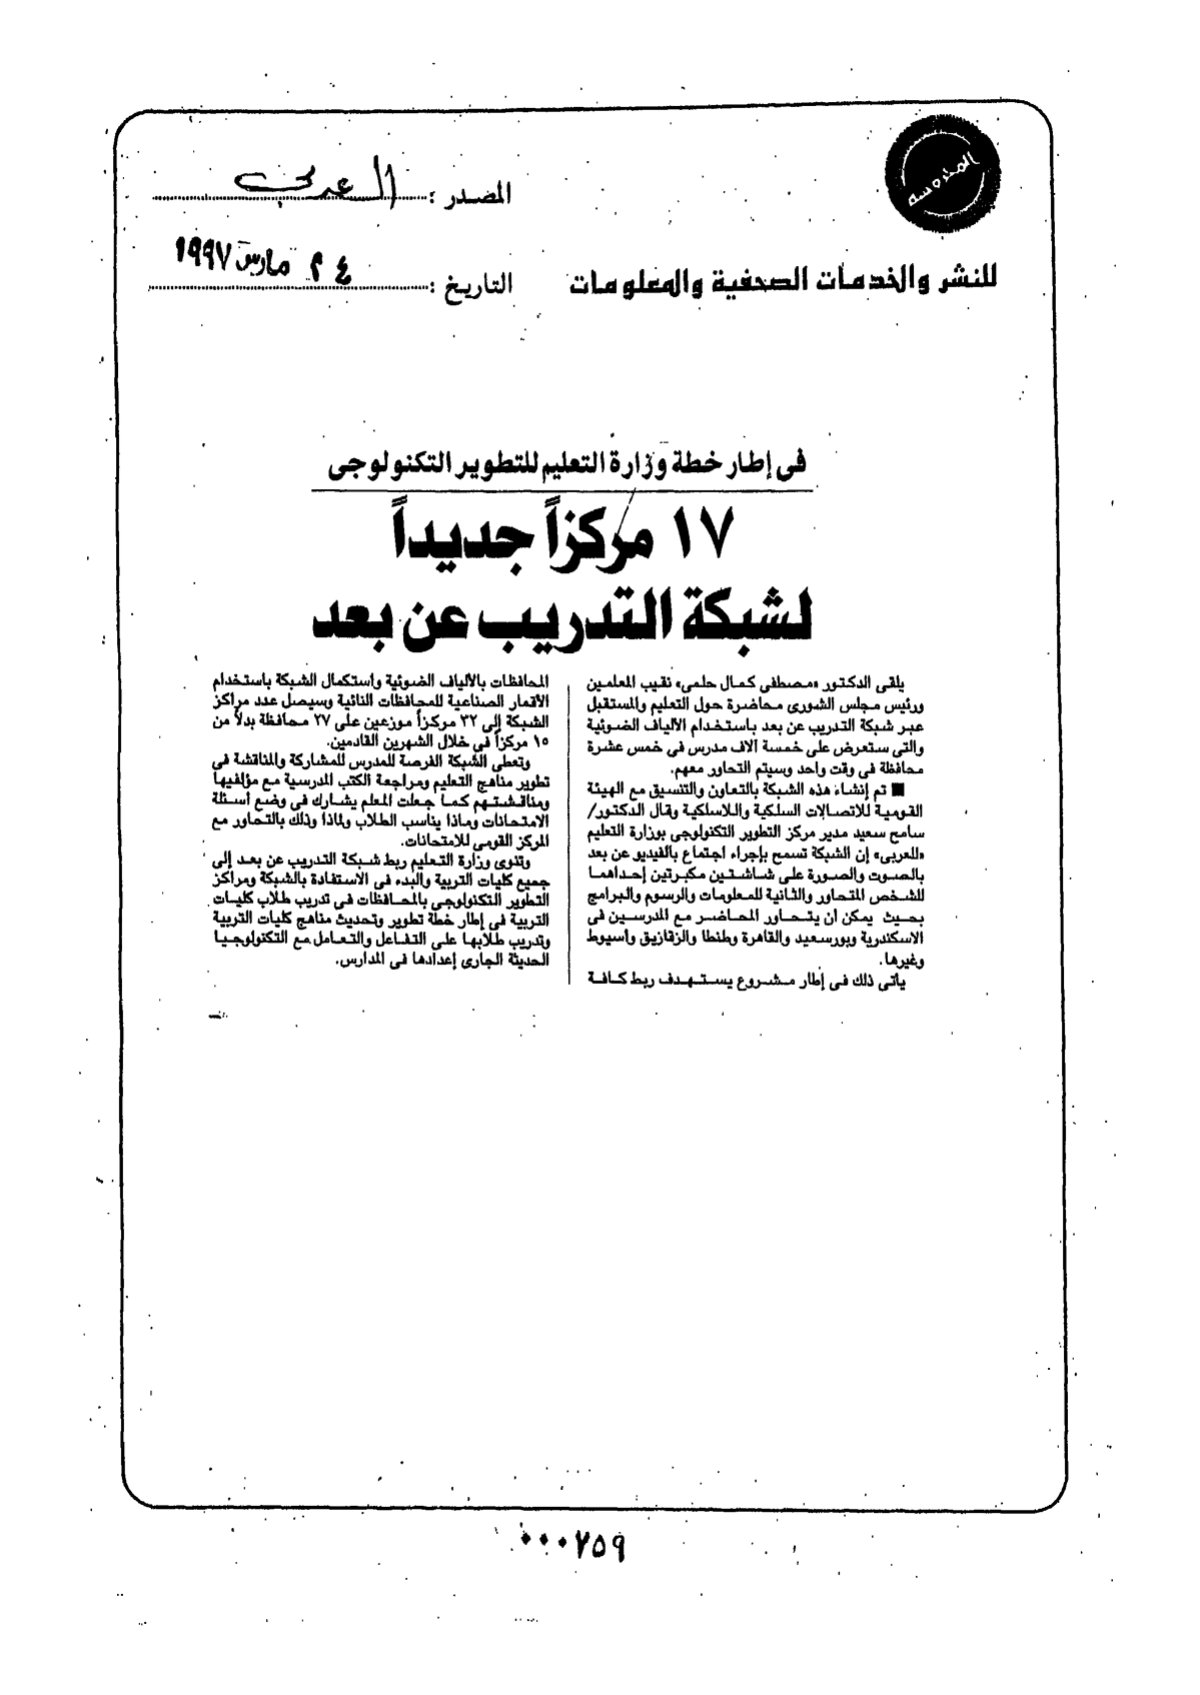 المحروسة
المصدر : العربى
للنشر والخدمات الصحفية والمعلومات
التاريخ : مارس ١٩٩٧
فى إطار خطة وزارة التعليم للتطوير التكنولوجى
١٧ مركزاً جديداً
لشبكة التدريب عن بعد
يلقى الدكتور «مصطفى كمال حلمى» نقيب المعلمين
ورئيس مجلس الشورى محاضرة حول التعليم والمستقبل
عبر شبكة التدريب عن بعد باستخدام الألياف الضوئية
والتى ستعرض على خمسة آلاف مدرس فى خمس عشرة
محافظة فى وقت واحد وسيتم التحاور معهم.
■ تم إنشاء هذه الشبكة بالتعاون والتنسيق مع الهيئة
القومية للاتصالات السلكية واللاسلكية وقال الدكتور/
سامح سعيد مدير مركز التطوير التكنولوجى بوزارة التعليم
«للعربى» إن الشبكة تسمح بإجراء اجتماع بالفيديو عن بعد
بالصوت والصورة على شاشتين مكبرتين إحداهما
للشخص المتحاور والثانية للمعلومات والرسوم والبرامج
بحيث يمكن أن يتحاور المحاضر مع المدرسين فى
الاسكندرية وبورسعيد والقاهرة وطنطا والزقازيق وأسيوط
وغيرها.
يأتى ذلك فى إطار مشروع يستهدف ربط كافة
المحافظات بالألياف الضوئية واستكمال الشبكة باستخدام
الأقمار الصناعية للمحافظات النائية وسيصل عدد مراكز
الشبكة إلى ٣٢ مركزاً موزعين على ٢٧ محافظة بدلاً من
١٥ مركزاً فى خلال الشهرين القادمين.
وتعطى الشبكة الفرصة للمدرس للمشاركة والمناقشة فى
تطوير مناهج التعليم ومراجعة الكتب المدرسية مع مؤلفيها
ومناقشتهم كما جعلت المعلم يشارك فى وضع أسئلة
الامتحانات وماذا يناسب الطلاب ولماذا وذلك بالتحاور مع
المركز القومى للامتحانات.
وتنوى وزارة التعليم ربط شبكة التدريب عن بعد إلى
جميع كليات التربية والبدء فى الاستفادة بالشبكة ومراكز
التطوير التكنولوجى بالمحافظات فى تدريب طلاب كليات
التربية فى إطار خطة تطوير وتحديث مناهج كليات التربية
وتدريب طلابها على التفاعل والتعامل مع التكنولوجيا
الحديثة الجارى إعدادها فى المدارس.
٠٠٠٧٥٩